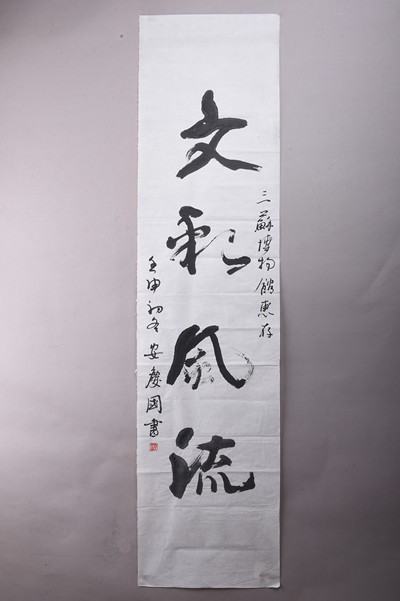 三蘇博物館惠存
文彩风流
壬申初冬 安慶國書